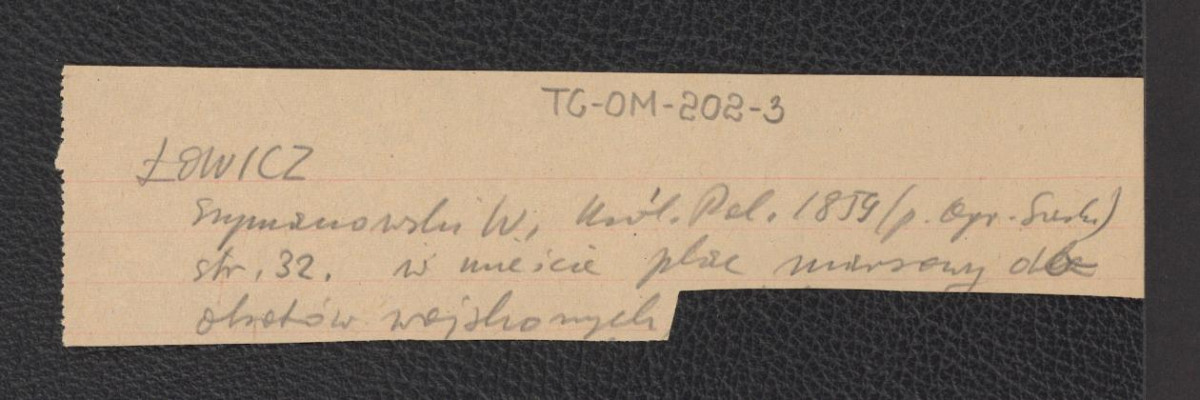 TG-OM-202-3
ŁOWICZ
Szymanowski W., Król. Pol. 1859 (p. Ogr. Saski)
str. 32. w mieście plac marsowy dla
obrotów wojskowych